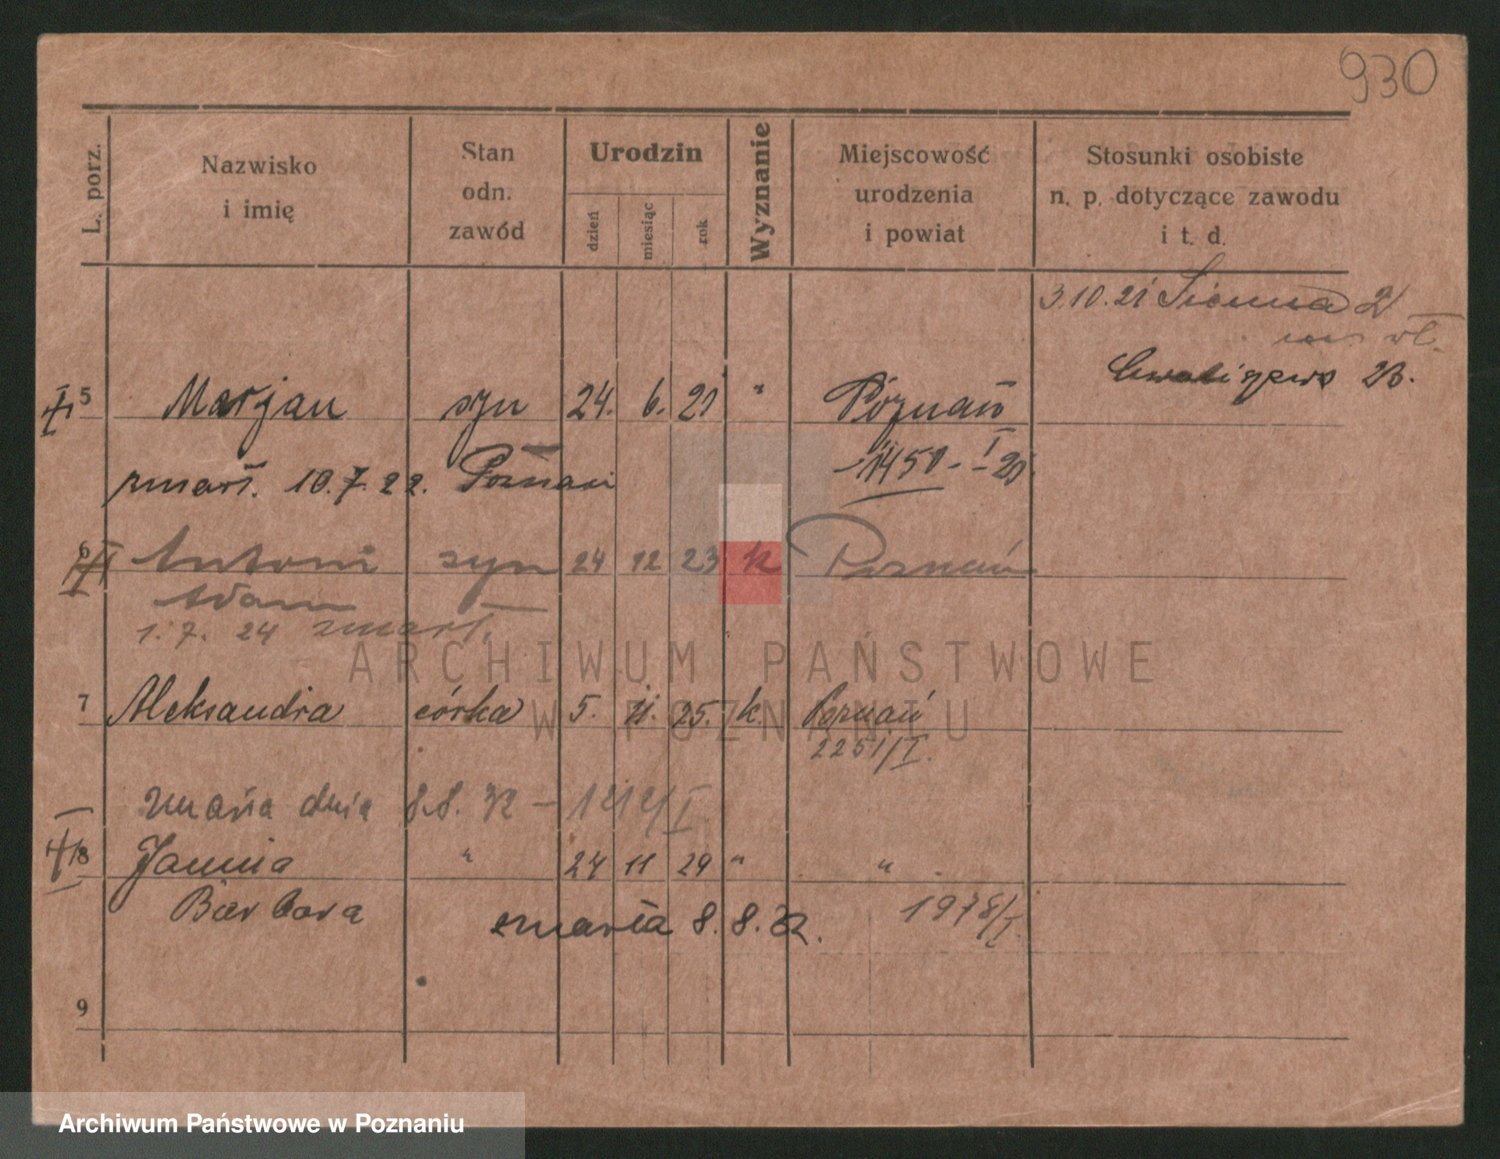 930
L. porz.
Nazwisko
i imię
Stan
odn.
zawód
Urodzin
dzień
miesiąc
rok
Wyznanie
Miejscowość
urodzenia
i powiat
Stosunki osobiste
n. p. dotyczące zawodu
i t. d.
3.10.21 Sienna 2
23.
5 Marjan syn 24. 6. 21 " Poznań
1450 - I 21
zmarł. 10.7.22. Poznań
6 Antoni syn 24 12 23 k Poznań
Adam
1. 7. 24 zmarł.
ARCHIWUM PAŃSTWOWE
W POZNANIU
7 Aleksandra córka 5. 11. 25. k. Poznań
2251/I.
zmarła dnia 8.8. 32 - 1412/I
8 Janina " 24 11 29 " "
Barbara 1978/I
zmarła 8.8.32.
9
Archiwum Państwowe w Poznaniu